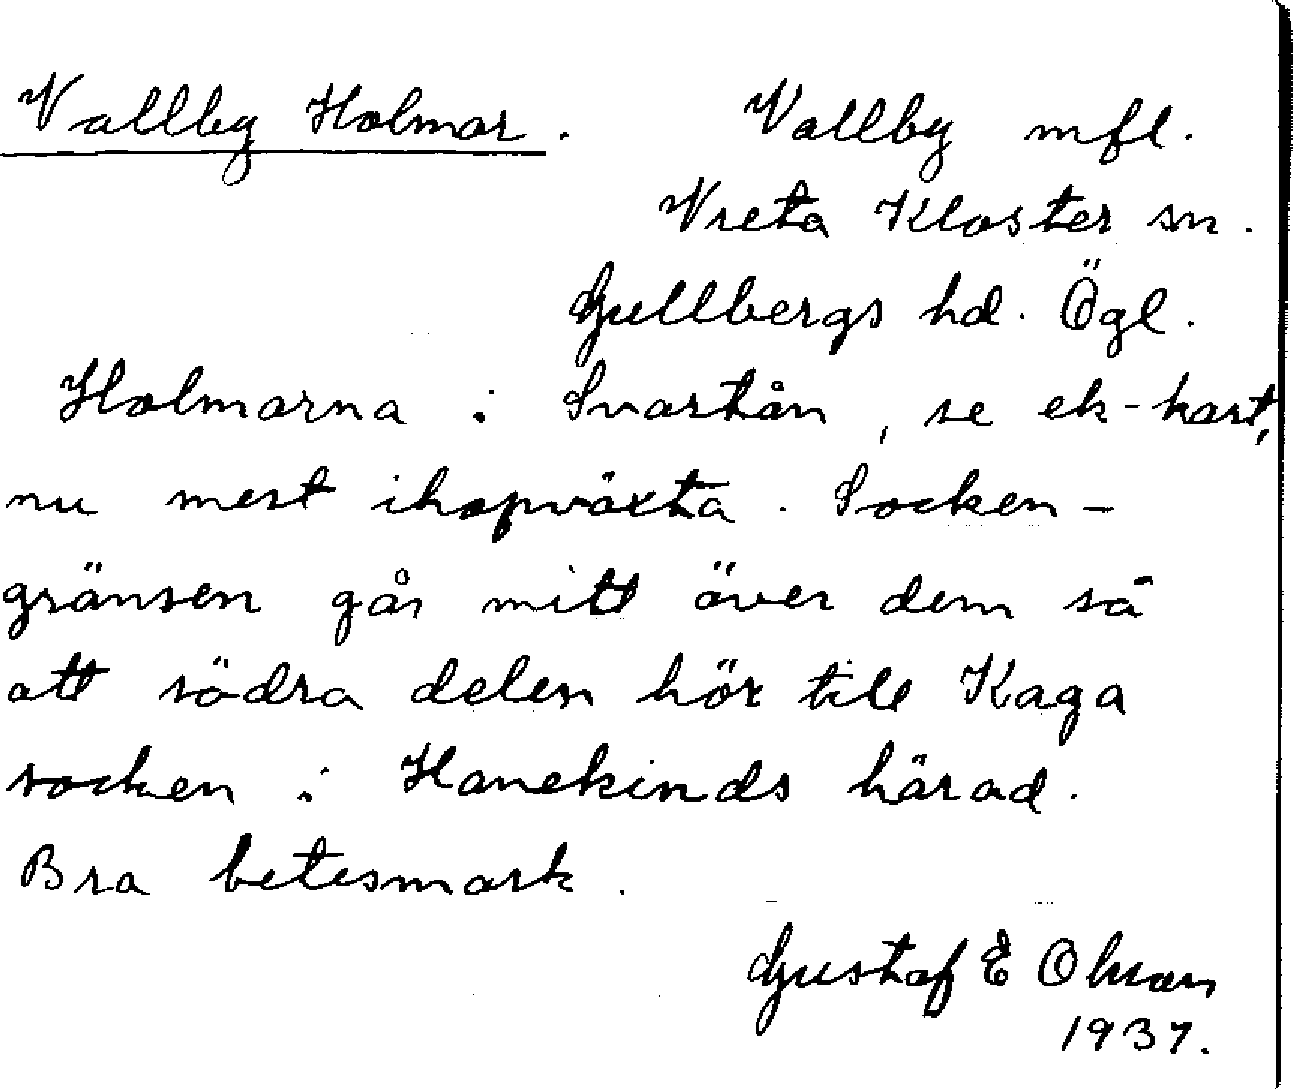 Vallby Holmar. Vallby mfl.
Vreta Kloster sn.
Gullbergs hd. Ögl.
Holmarna i Svartån, se ek-kart,
nu mest ihopväxta. Socken-
gränsen går mitt över dem så
att södra delen hör till Kaga
socken i Hanekinds härad.
Bra betesmark.
Gustaf E Olsson
1937.